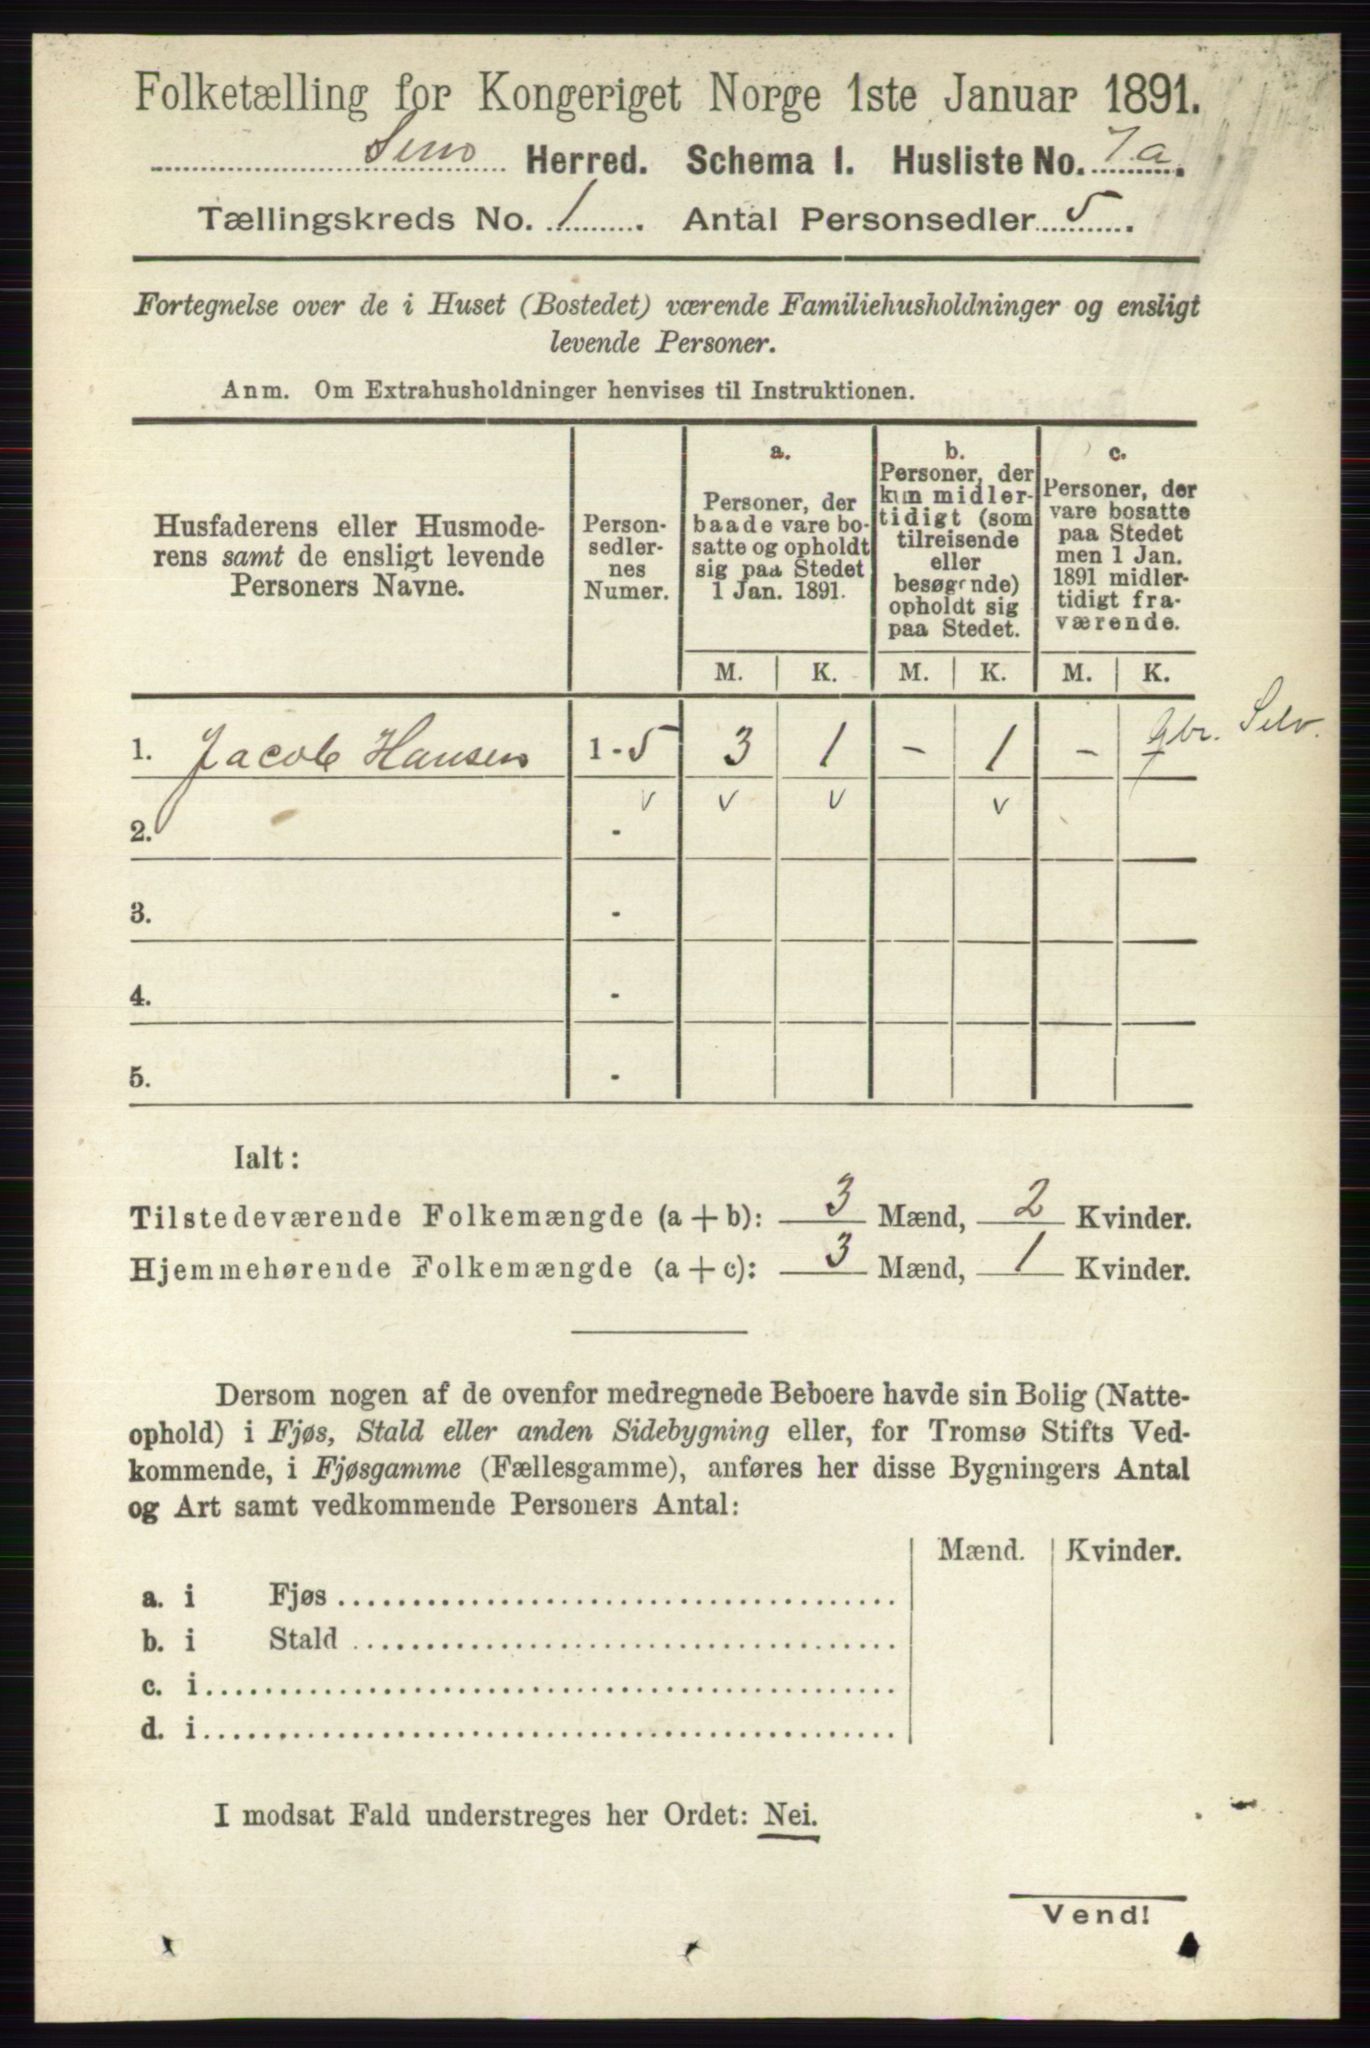 Folketælling for Kongeriget Norge 1ste Januar 1891.
Sem Herred. Schema 1. Husliste No. 7a.
Tællingskreds No. 1. Antal Personsedler 5.
Fortegnelse over de i Huset (Bostedet) værende Familiehusholdninger og ensligt
levende Personer.
Anm. Om Extrahusholdninger henvises til Instruktionen.
Husfaderens eller Husmode-
rens samt de ensligt levende
Personers Navne.
Person-
sedler-
nes
Numer.
a.
Personer, der
baade vare bo-
satte og opholdt
sig paa Stedet
1 Jan. 1891.
b.
Personer, der
kun midler-
tidigt (som
tilreisende
eller
besøgende)
opholdt sig
paa Stedet.
c.
Personer, der
vare bosatte
paa Stedet
men 1 Jan.
1891 midler-
tidigt fra-
værende.
M. K. M. K. M. K.
1. Jacob Hansen 1-5 3 1 - 1 - - gbr. Selv.
v v v v
2. -
3. -
4. -
5. -
Ialt:
Tilstedeværende Folkemængde (a + b): 3 Mænd, 2 Kvinder.
Hjemmehørende Folkemængde (a + c): 3 Mænd, 1 Kvinder.
Dersom nogen af de ovenfor medregnede Beboere havde sin Bolig (Natte-
ophold) i Fjøs, Stald eller anden Sidebygning eller, for Tromsø Stifts Ved-
kommende, i Fjøsgamme (Fællesgamme), anføres her disse Bygningers Antal
og Art samt vedkommende Personers Antal:
Mænd. Kvinder.
a. i Fjøs
b. i Stald
c. i
d. i
I modsat Fald understreges her Ordet: Nei.
Vend!